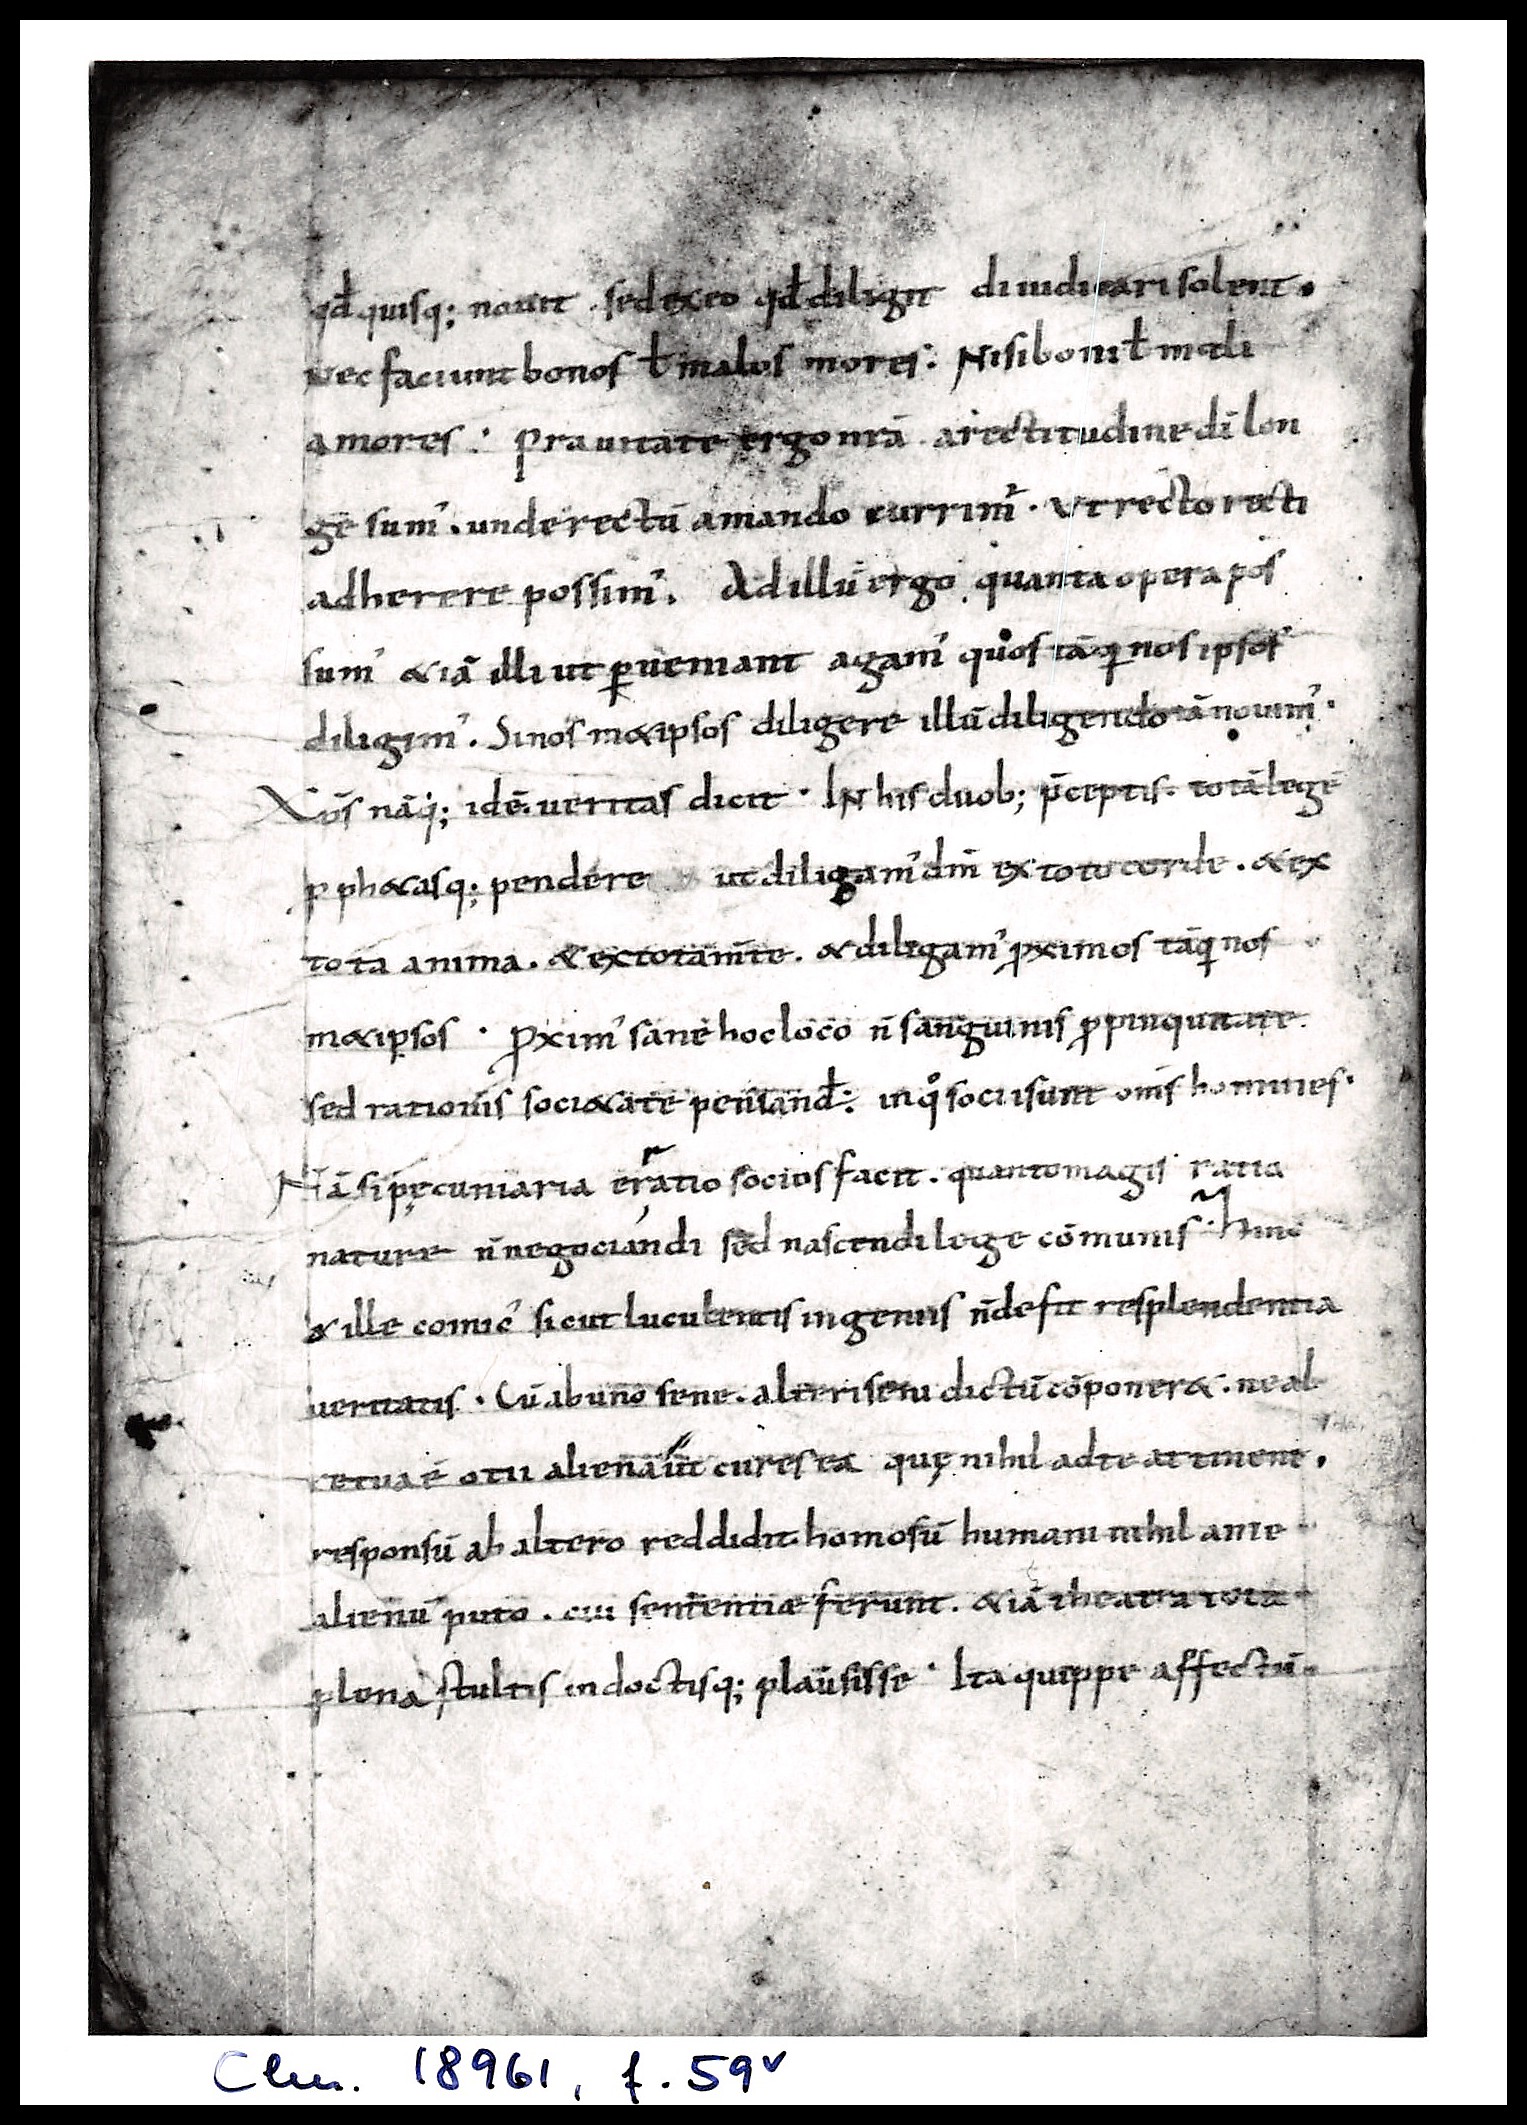 qđ quisq; nouit . sed ex eo qđ diligit diiudicari solent .
Nec faciunt bonos ł malos mores : Nisi boni ł mali
amores : Prauitate ergo nr̄a a rectitudine dī lon
ge sum᾽ . unde rectū amando currim᾽ . Vt recto recti
adherere possim᾽ . Ad illū ergo quanta opera pos
sum᾽ &iā illi ut ꝑueniant agam᾽ quͦs tāq nos ipsos
diligim᾽ . Si nos m&ipsos diligere illū diligendo iā nouim᾽ .
Xp̄s nāq; idē ueritas dicit . IN his duob; p̄ceptis . totā legē
ꝓph&asq; pendere ut diligam᾽ dm̄ ex toto corde . & ex
tota anima . & ex tota m̄te . & diligam᾽ ꝓximos tāq nos
m&ipsos . Proxim᾽ sane hoc loco n̄ sanguinis ꝓpinquitate
sed rationis soci&ate pensand̄ : in qͦ socii sunt om̄s homines .
Nā si pęcuniaria ratio socios facit . quanto magis ratio
nature n̄ negociandi sed nascendi lege cōmunis . Hinc
& ille comic᾽ sicut luculentis ingeniis n̄ defit resplendentia
ueritatis . Cū ab uno sene . alteri seni dictū cōponer& . ne al
re tua ē otii aliena ut cures ea quę nihil ad te attinent .
responsū ab altero reddidit . homo sū humani nihil a me
alienū puto . cui sententiæ ferunt . &iā theatra tota
plena stultis indoctisq; plausisse . Ita quippe affectū
Clm. 18961, f. 59ᵛ